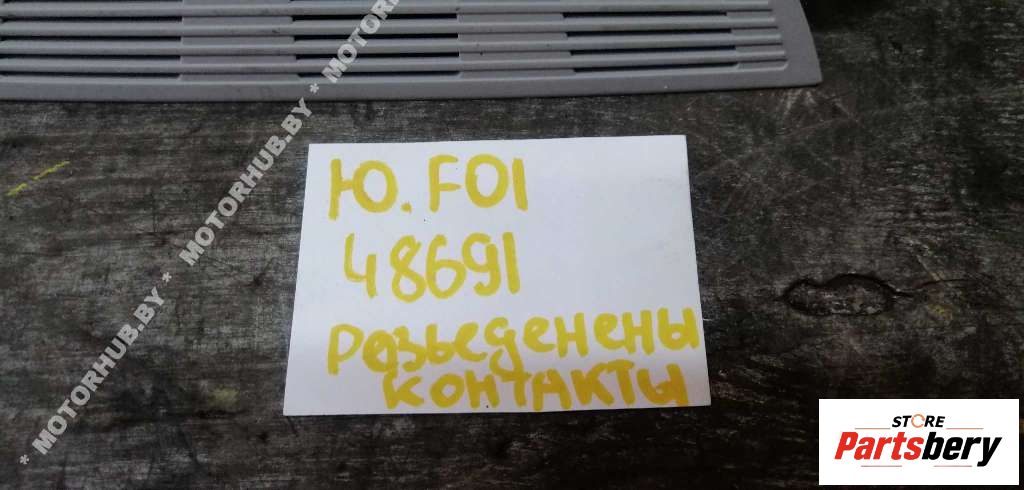 * MOTORHUB.BY * MOTORHUB.BY * MOTORHUB.BY * MOTOR
Ю. F01
48691
разьеденены
контакты
STORE
Partsbery